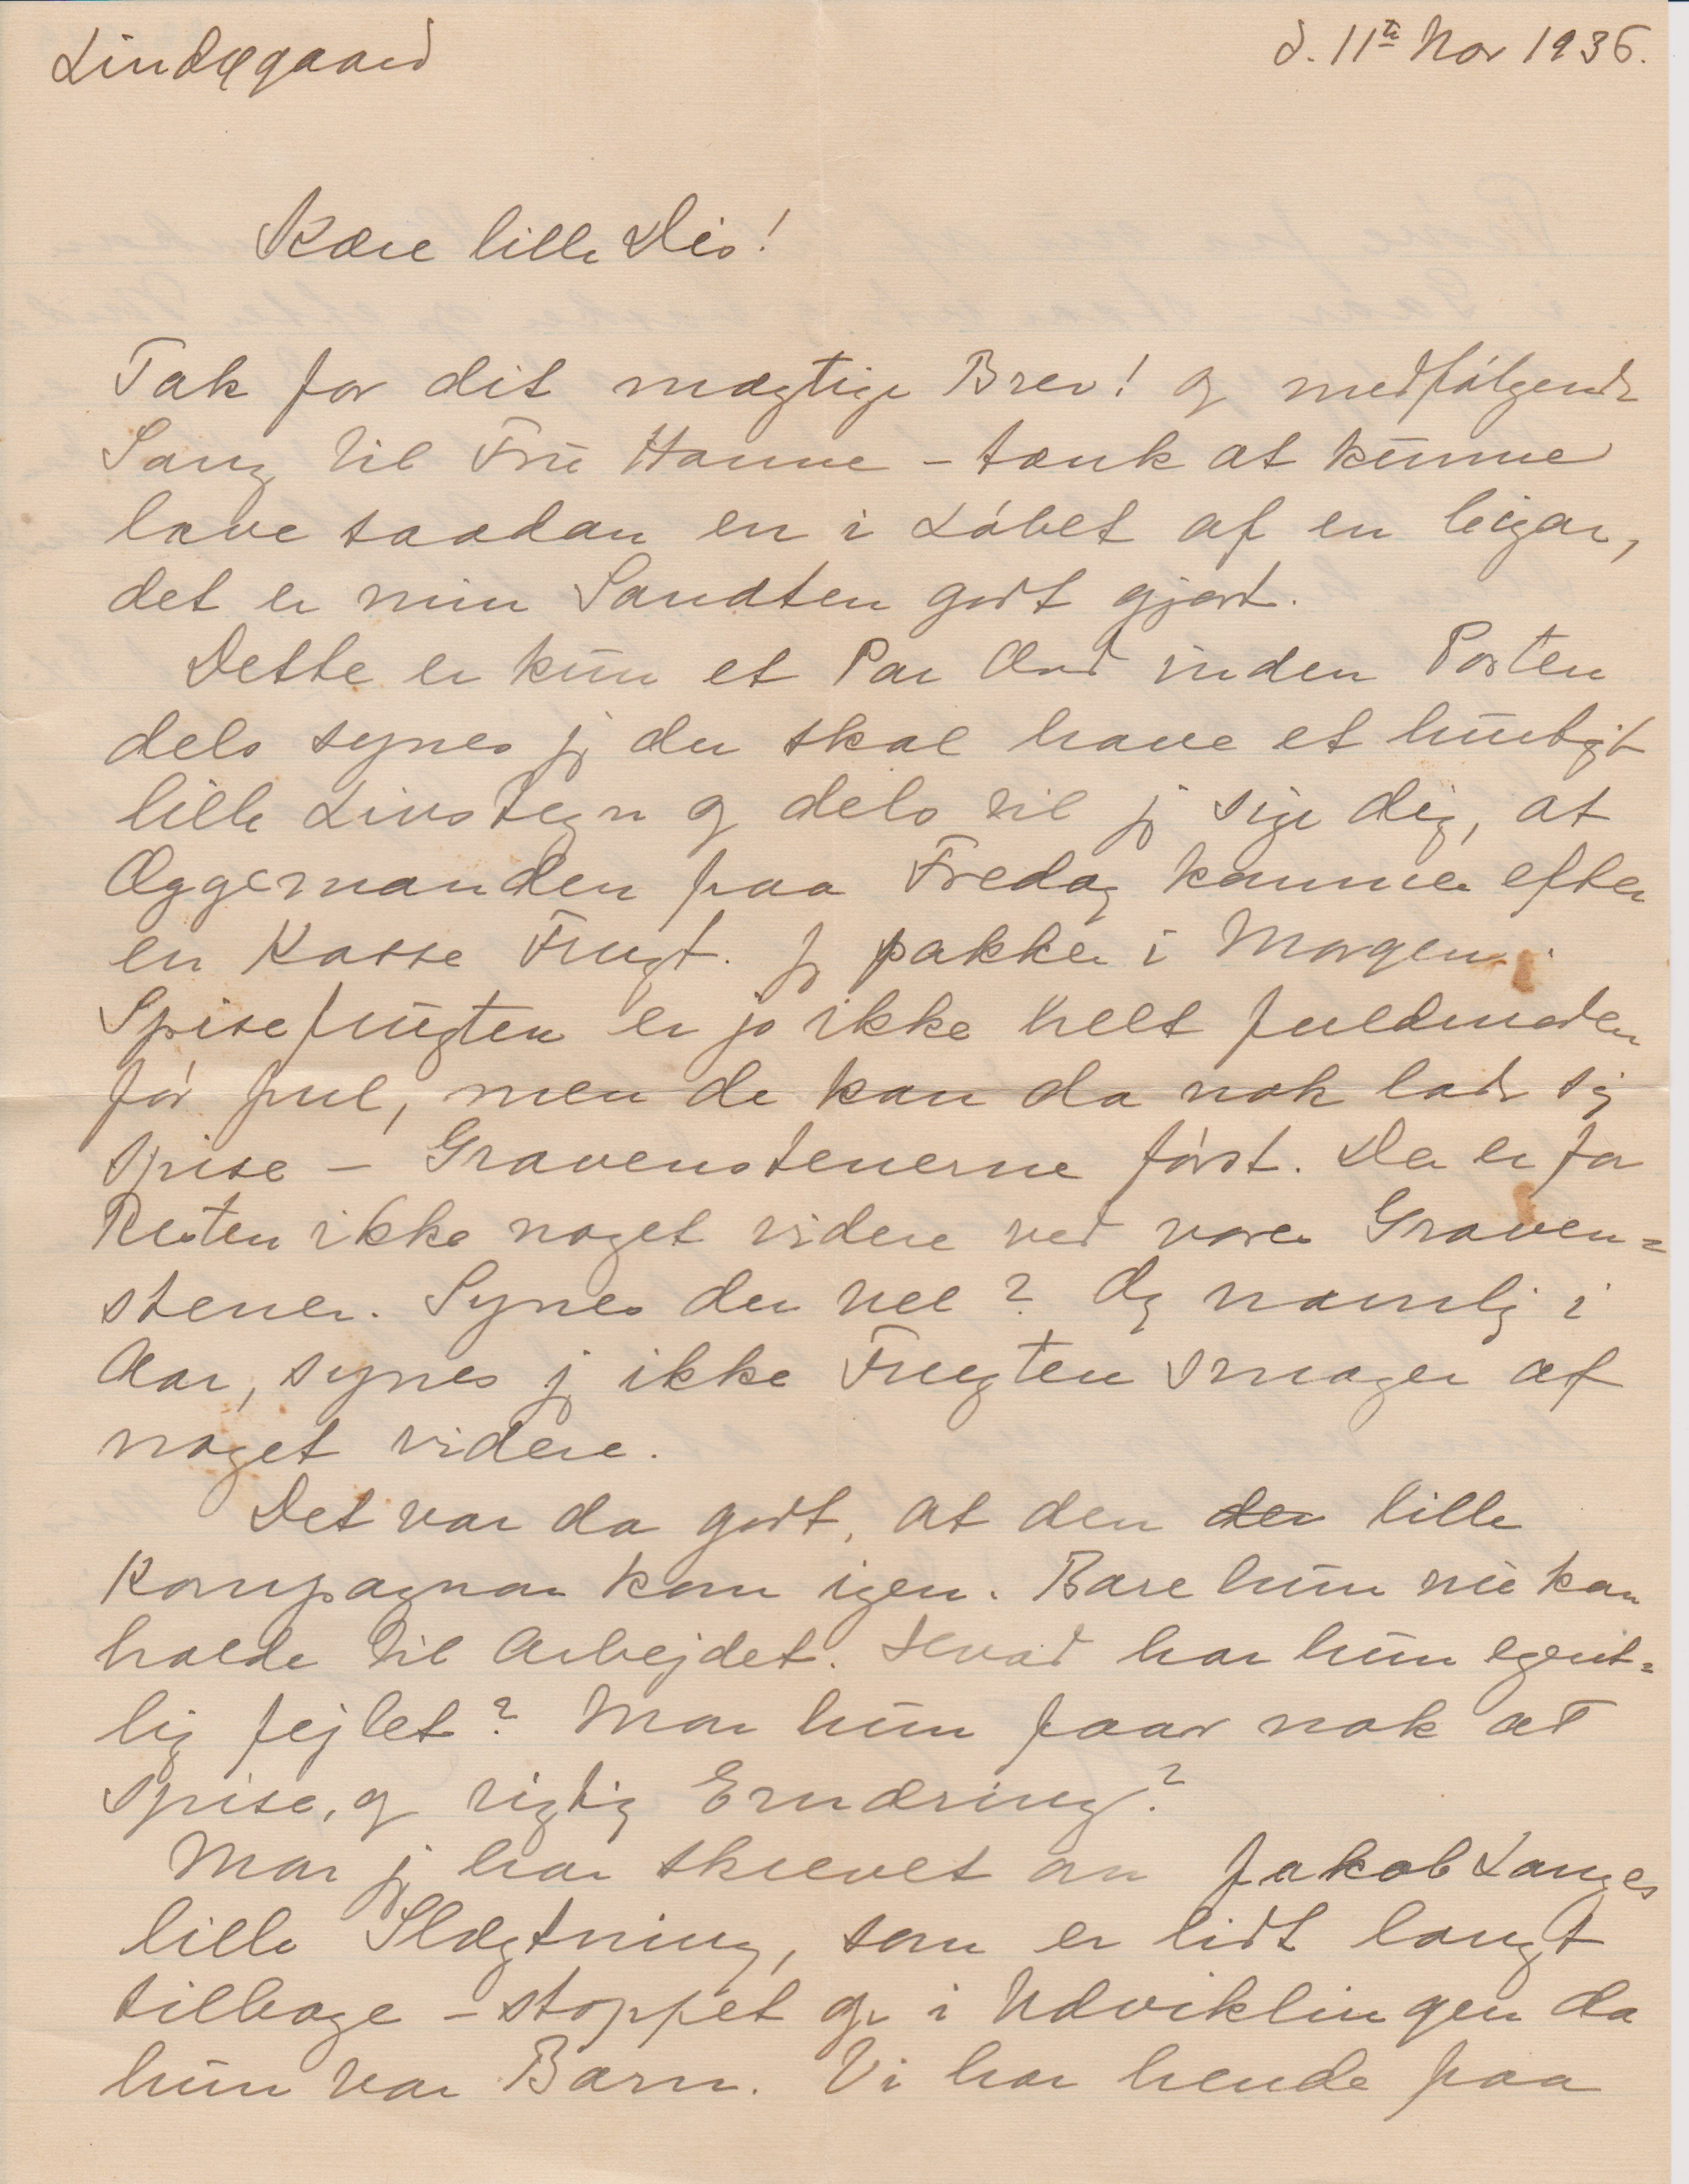 Lindøgaard
d. 11te Nov 1936.
Kære lille Dis!
Tak for dit mægtige Brev! og medfølgende
Sang til Fru Hanne - tænk at kunne
lave saadan en i Løbet af en Cigar,
det er min Sandten godt gjort.
Dette er kun et Par Ord inden Posten
dels synes jg du skal have et hurtigt
lille Livstegn og dels vil jg sige dig, at
Æggemanden paa Fredag kommer efter
en Kasse Frugt. Jg pakker i Morgen.
Spisefrugten er jo ikke helt fuldmoden
før Jul, men de kan da nok lade sig
spise - Gravenstenerne først. Der er for
Resten ikke noget videre ved vores Graven=
stener. Synes du vel? Og navnlig i
Aar, synes jg ikke Frugten smager af
noget videre.
Det var da godt, at den der lille
Kompagnon kom igen. Bare hun nu kan
holde til Arbejdet. Hvad har hun egent=
lig fejlet? Mon hun faar nok at
spise, og rigtig Ernæring?
Mon jg har skrevet om Jakob Langes
lille Slægtning, som er lidt langt
tilbage - stoppet op i Udviklingen da
hun var Barn. Vi har hende paa